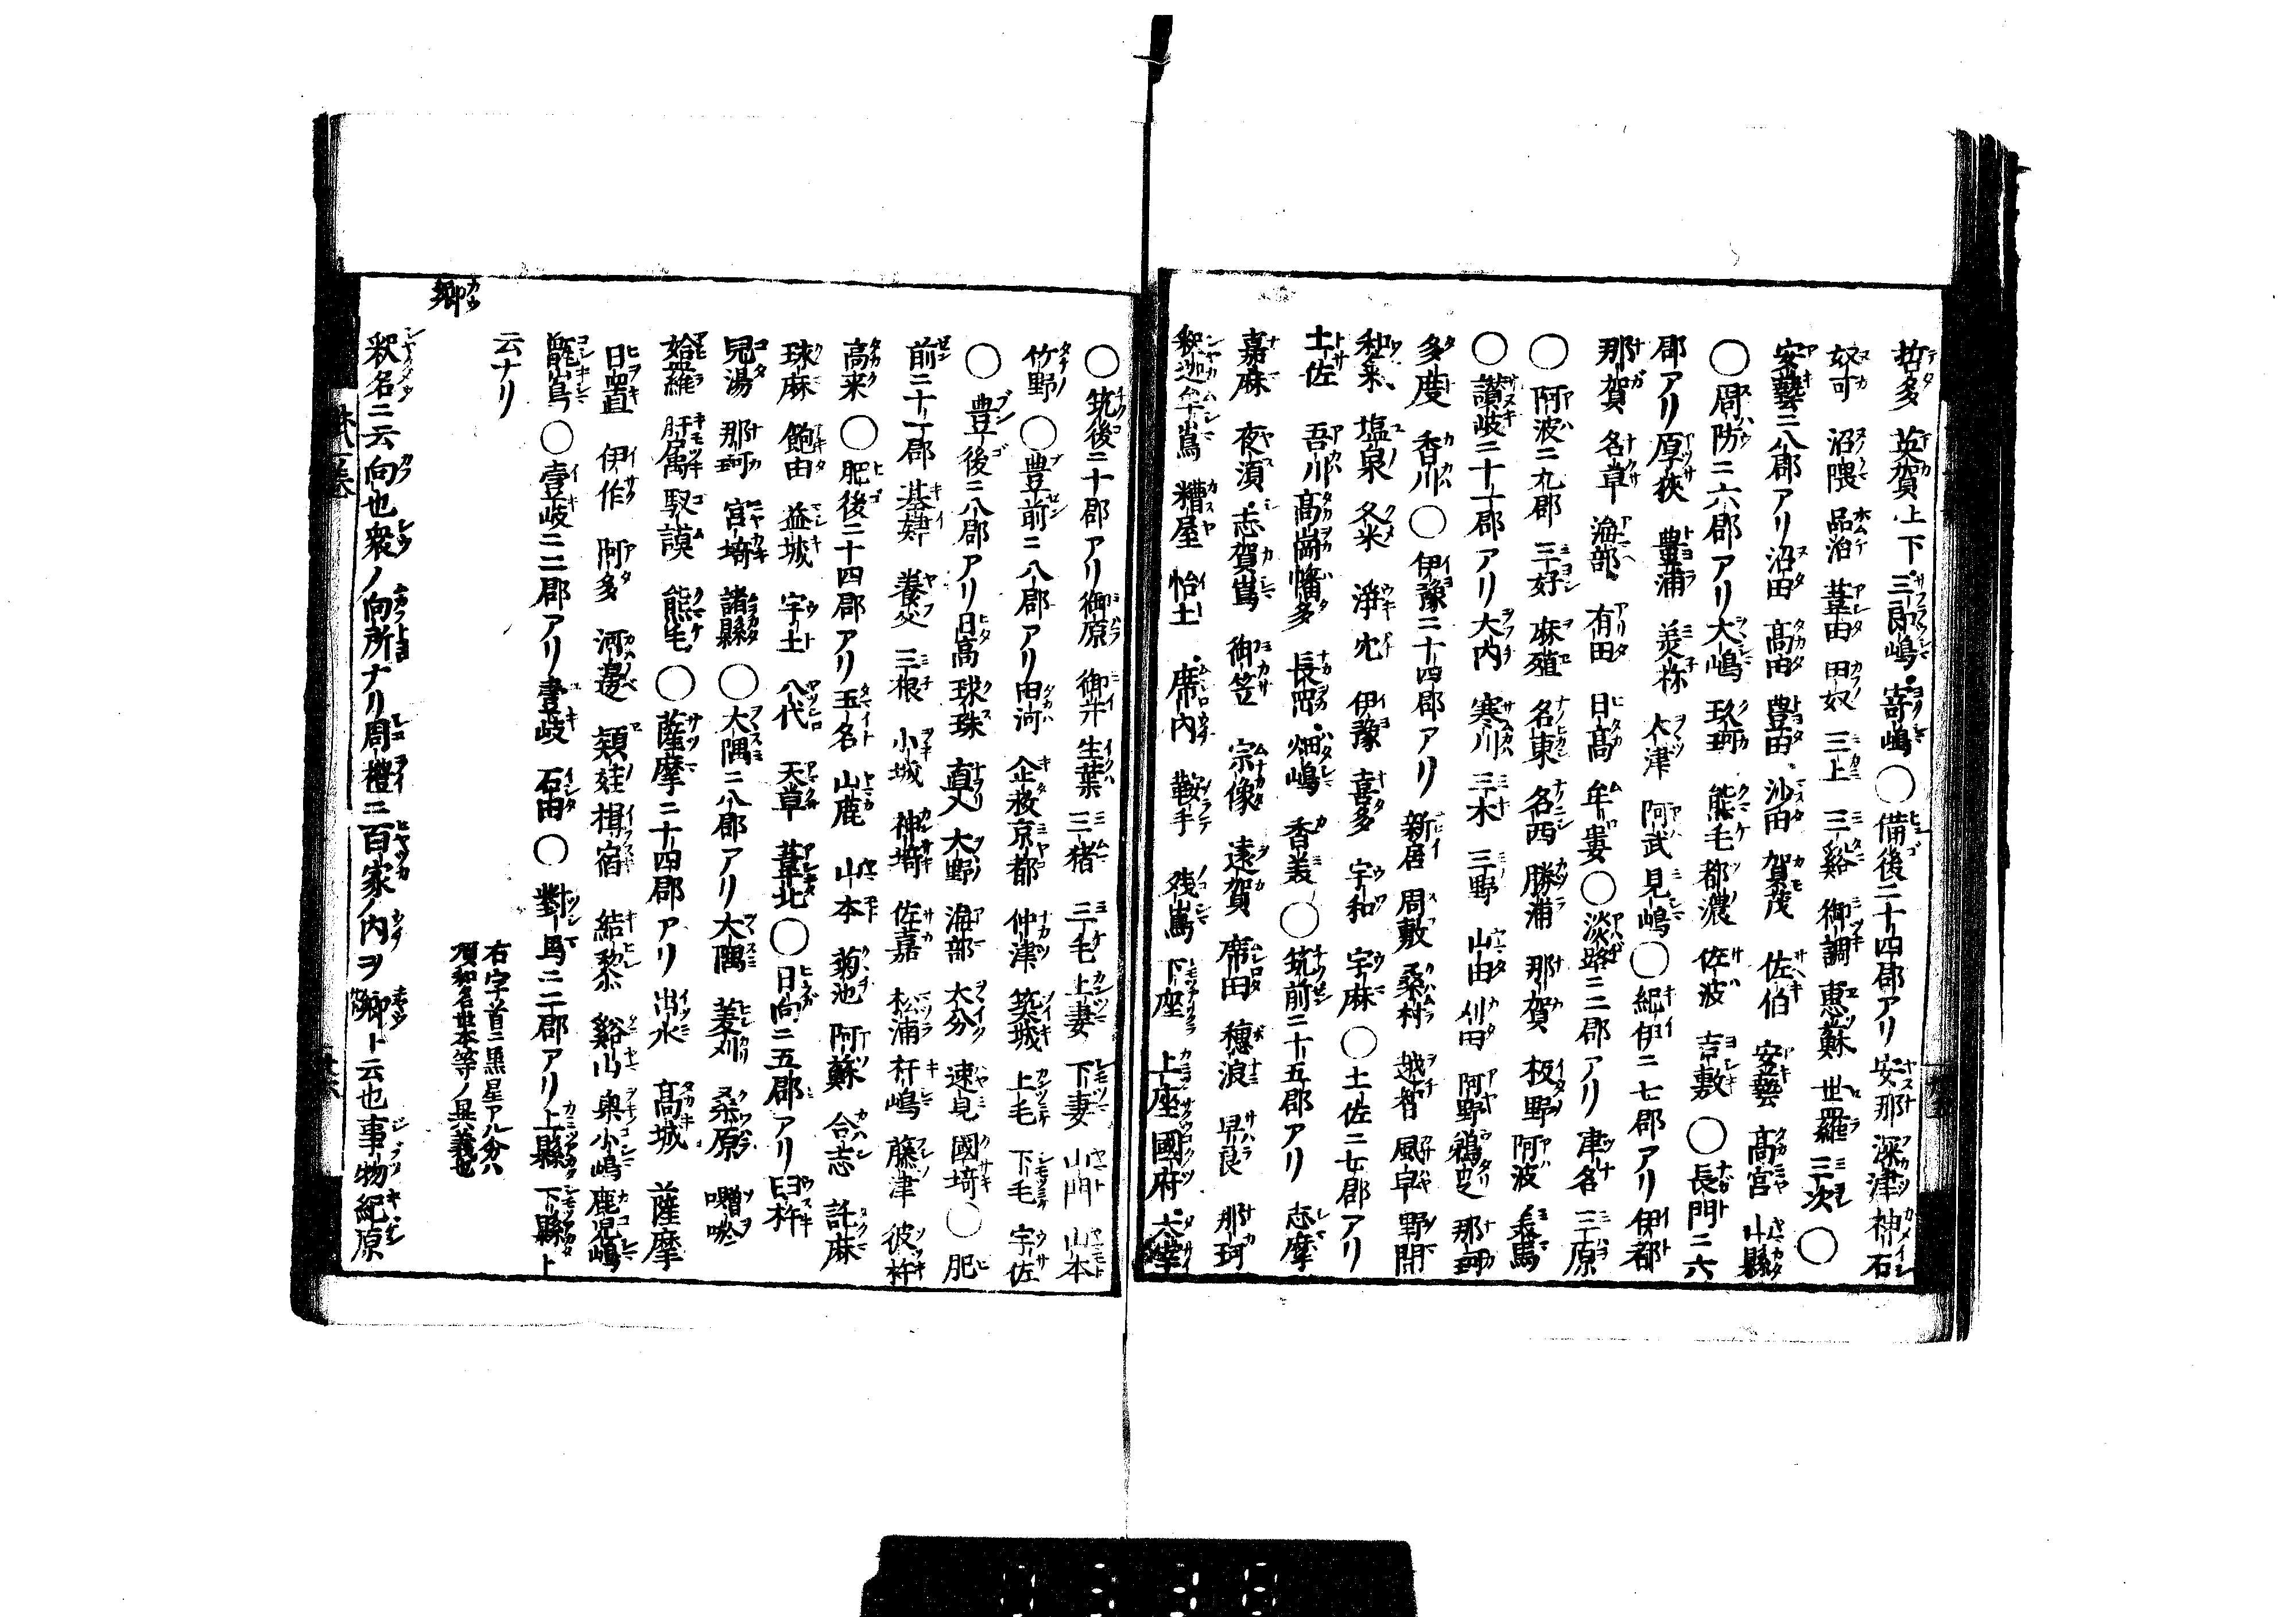 哲多 英賀上下三郎嶋寄嶋〇備後ニ十四郡アリ 安那 深津 神石
奴可 沼隈 品治 葦田 甲奴 三上 三谿 御調 恵蘇 世羅 三次〇
安藝ニ八郡アリ沼田 高田 豊田 沙田 賀茂 佐伯 安藝 高宮 山縣
〇周防ニ六郡アリ大嶋 玖珂 熊毛 都濃 佐波 吉敷〇長門ニ六
郡アリ厚狭 豊浦 美祢 大津 阿武 見嶋〇紀伊ニ七郡アリ伊都
那賀 名草 海部 有田 日高 牟婁〇淡路ニ二郡アリ 津名 三原
〇阿波ニ九郡 三好 麻殖 名東 名西 勝浦 那賀 板野 阿波 美馬
〇讃岐ニ十一郡アリ大内 寒川 三木 三野 山田 刈田 阿野 鵜足 那珂
多度 香川〇伊豫ニ十四郡アリ 新居 周敷 桑村 越智 風早 野間
和気 温泉 久米 浮穴 伊豫 喜多 宇和 宇麻〇土佐ニ七郡アリ
土佐 吾川 高岡 幡多 長岡 畑嶋 香美〇筑前ニ十五郡アリ 志摩
嘉麻 夜須 志賀嶌 御笠 宗像 遠賀 席田 穂浪 早良 那珂
釈迦牟嶌 糟屋 怡土 席内 鞍手 残嶌 下座 上座 國府 大宰
〇筑後ニ十郡アリ御原 御井 生葉 三猪 三毛 上妻 下妻 山門 山本
竹野〇豊前ニ八郡アリ田河 企救 京都 仲津 築城 上毛 下毛 宇佐
〇豊後ニ八郡アリ日高 球珠 直入 大野 海部 大分 速見 國埼〇肥
前ニ十一郡 基肄 養父 三根 小城 神埼 佐嘉 松浦 杵嶋 藤津 彼杵
高来〇肥後ニ十四郡アリ玉名 山鹿 山本 菊池 阿蘇 合志 託麻
球麻 飽田 益城 宇土 八代 天草 葦北〇日向ニ五郡アリ臼杵
児湯 那珂 宮埼 諸縣〇大隅ニ八郡アリ大隅 菱刈 桑原 囎唹
姶羅 肝属 馭謨 熊毛〇薩摩ニ十四郡アリ 出水 高城 薩摩
日置 伊作 阿多 河邊 頴娃 揖宿 結黎 谿山 奥小嶋 鹿児嶋
甑嶌〇壹岐ニ二郡アリ壹岐 石田〇對馬ニ二郡アリ上縣 下縣ト
云ナリ
右字首ニ黒星アル分ハ
順和名世本等ノ異義也
郷
釈名ニ云向也衆ノ向所ナリ周禮ニ百家ノ内ヲ郷ト云也事物紀原